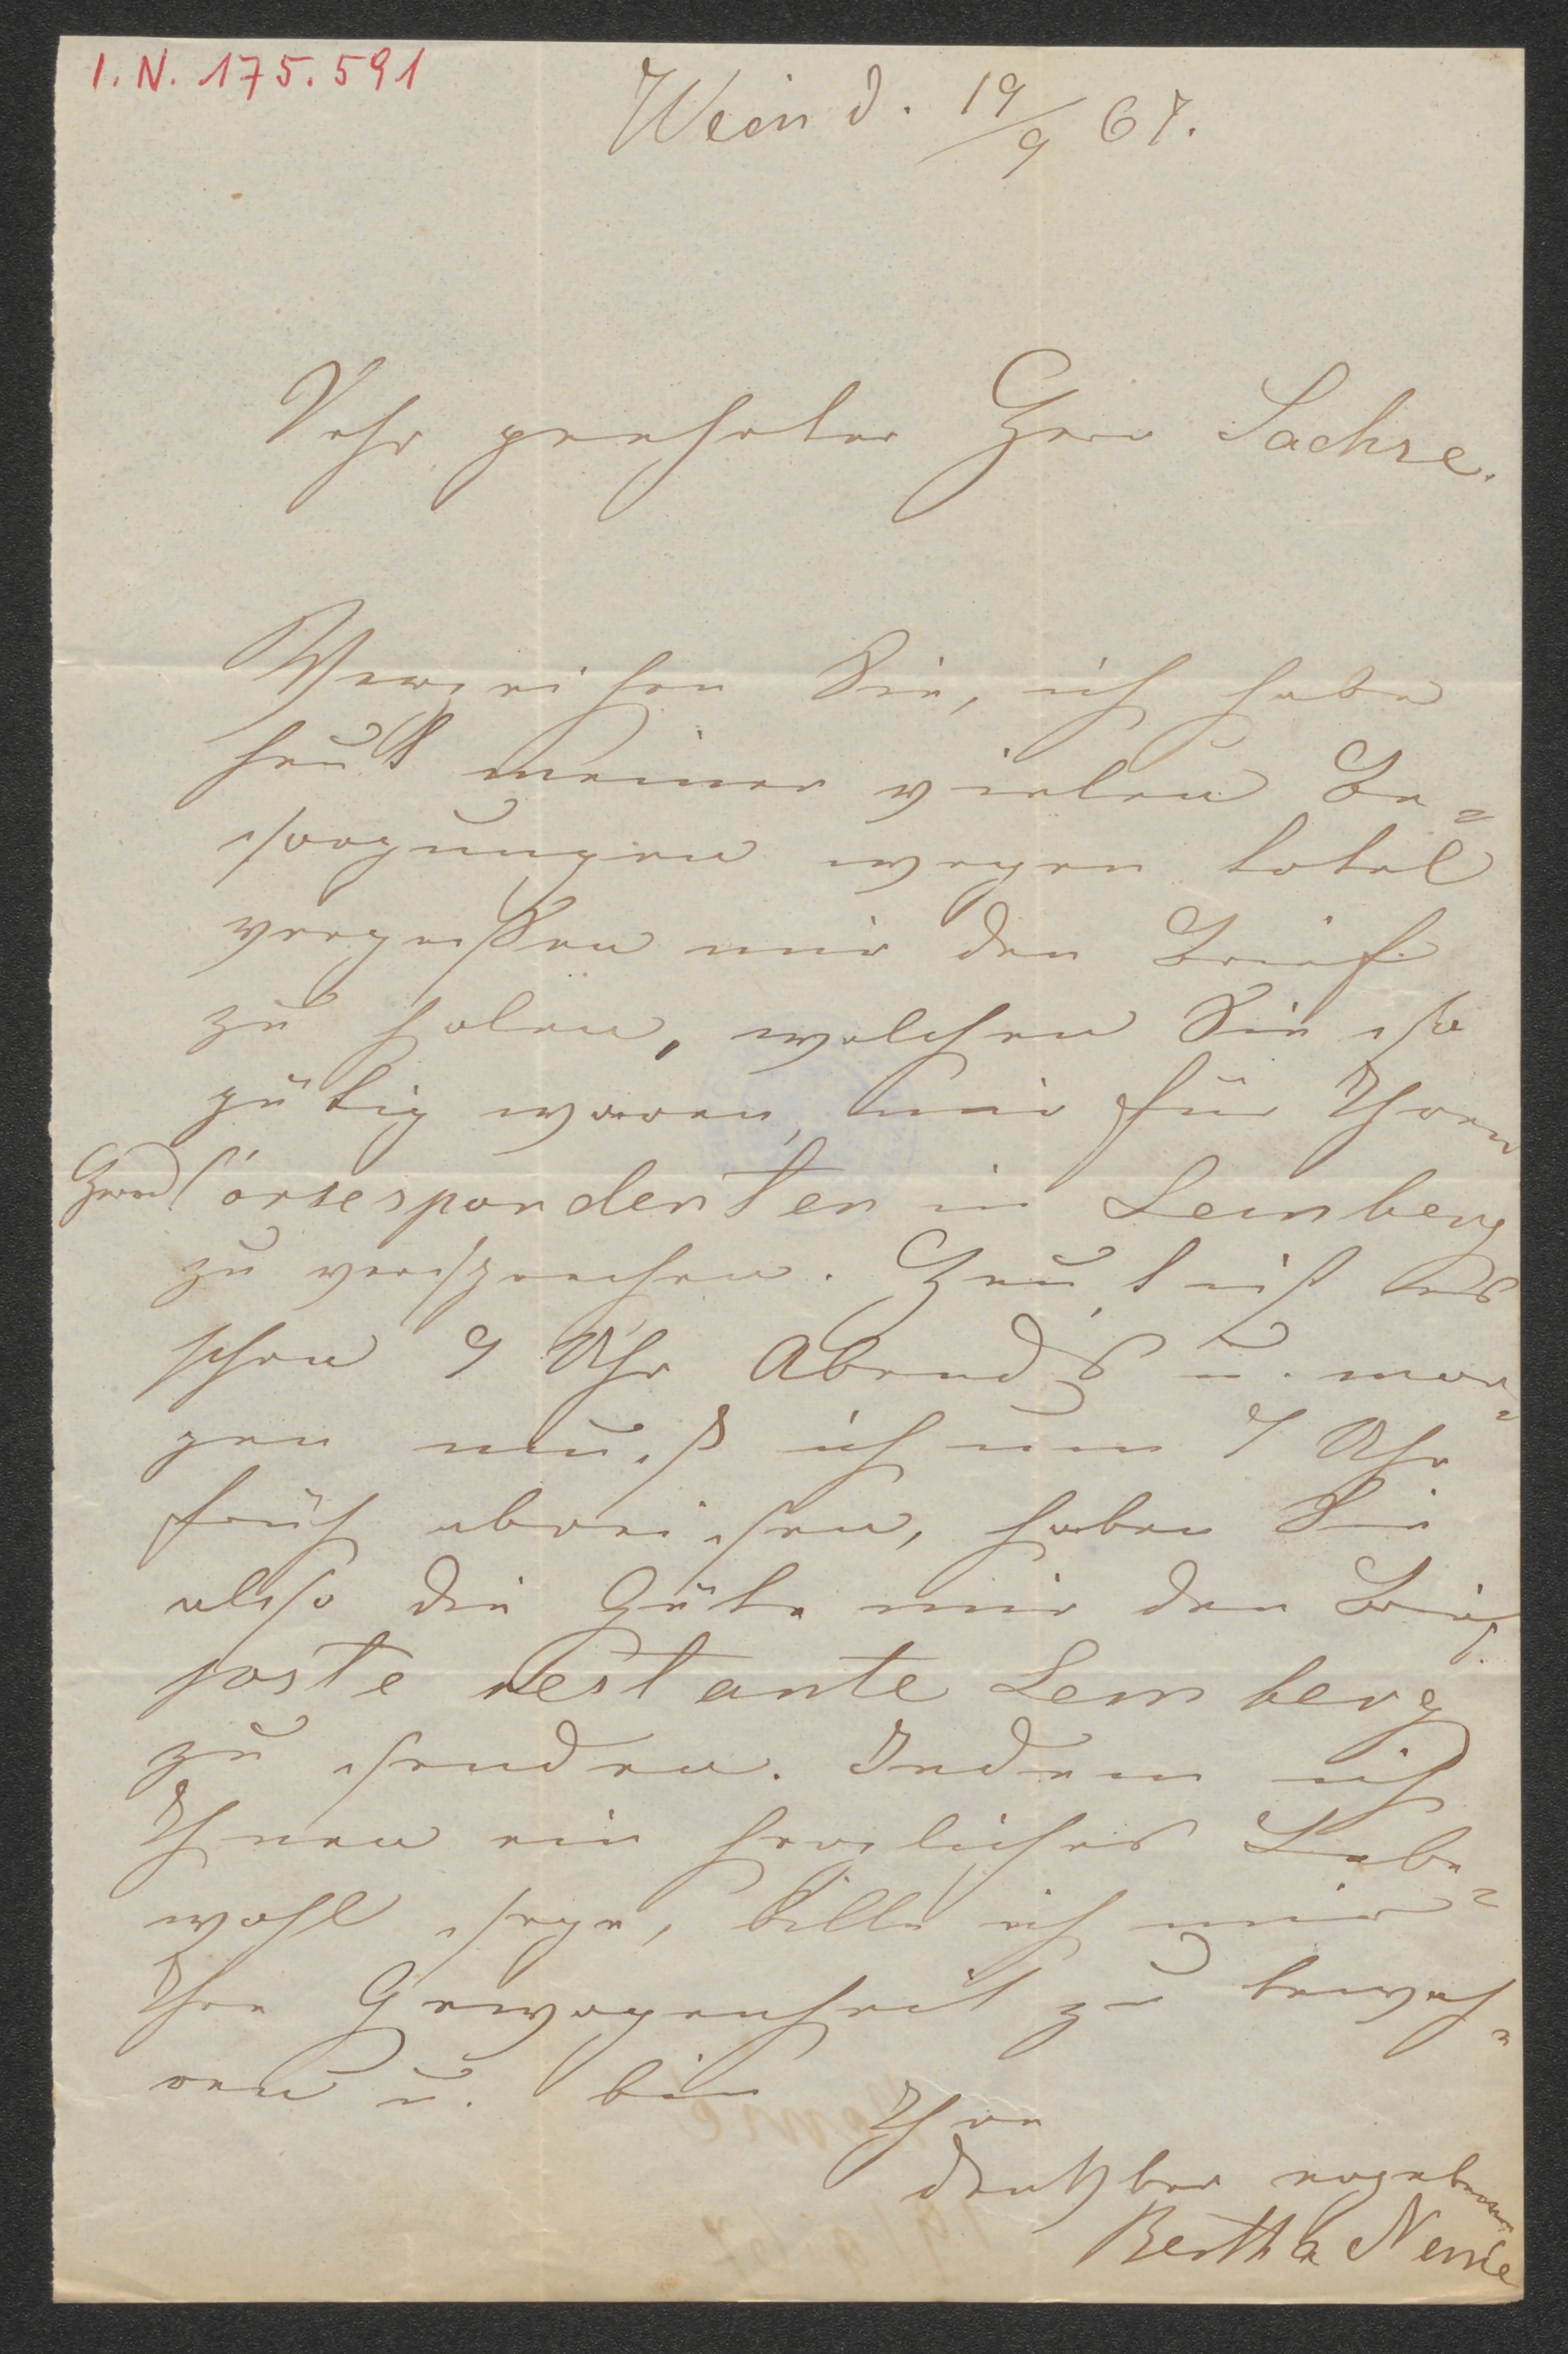 I.N. 175.591
Wien d. 19/9 67.
Sehr geehrter Herr Sachse.
Verzeihen Sie, ich habe
heut meiner vielen Be=
sorgungen wegen total
vergessen mir den Brief
zu holen, welchen Sie so
gütig waren, mir für Ihren
Herrn Correspondenten in Lemberg
zu versprechen. Heut ist es
schon 9 Uhr Abends u. mor=
gen muß ich um 7 Uhr
früh abreisen, haben Sie
also die Güte mir den Brief
poste restante Lemberg
zu senden. Indem ich
Ihnen ein herzliches Lebe=
wohl sage, bitte ich mir
Ihre Gewogenheit zu bewah=
ren u. bin
Ihre
dankbar ergebene
Bertha